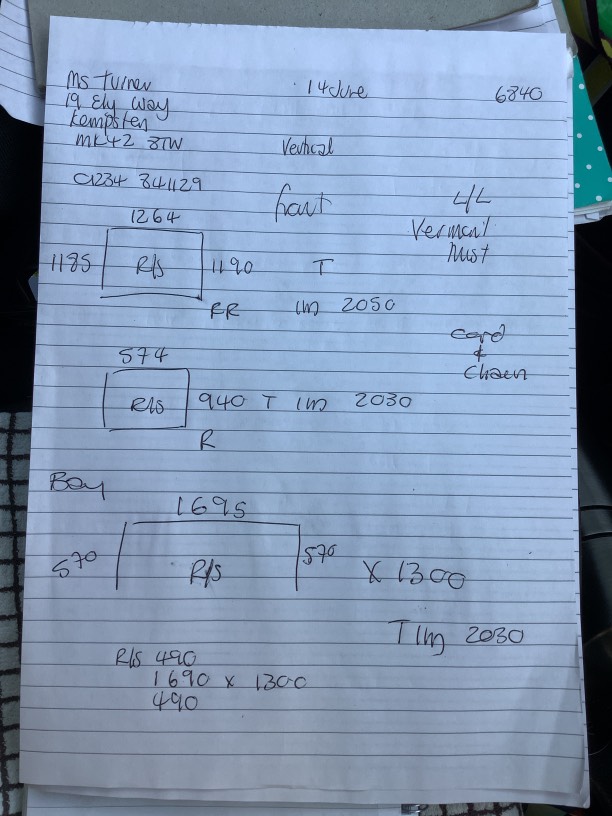 Ms Turner 14 June 6840
19 Ely Way
Kempsten
MK42 8TW Vertical
01234 841129
front L/L
Vermont
Mist
1264
1185 R/S 1190 T
RR 1m 2050
cord
&
Chain
574
R/S 940 T 1m 2030
R
Bay
1695
570 R/S 570 x 1300
T 1m 2030
R/S 490
1690 x 1300
490